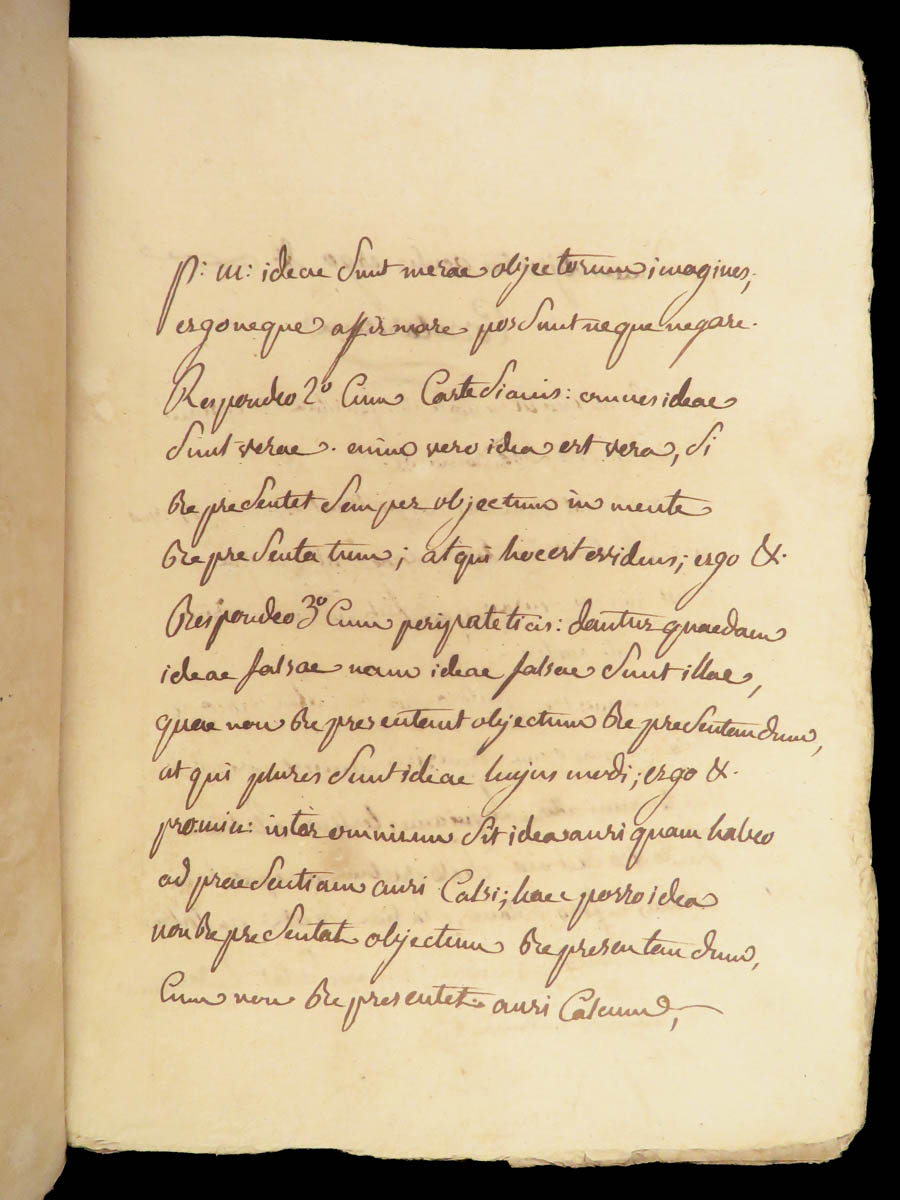 p: m: ideae sunt merae objectorum imagines;
ergo neque affirmare possunt neque negare.
Respondeo 2º Cum Cartesianis: omnes ideae
sunt verae. enim vero idea est vera, si
repraesentet semper objectum in mente
repraesentatum; atqui hoc est evidens; ergo &.
Respondeo 3º Cum peripateticis: dantur quaedam
ideae falsae nam ideae falsae sunt illae,
quae non representant objectum repraesentandum,
atqui plures sunt ideae hujus modi; ergo &.
pro: min: instar omnium sit idea auri quam habeo
ad praesentiam auri Calsi; haec porro idea
non repraesentat objectum representandum,
Cum non representet auri Calcum,